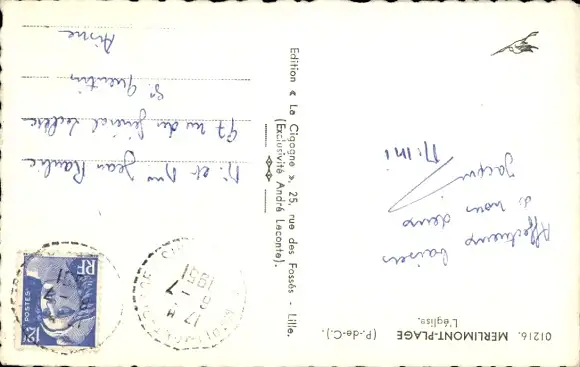 01216. MERLIMONT-PLAGE (P.-de-C.)
L'église.
Affectueux baisers
de nous deux
Jacques
Mimi
Edition « La Cigogne », 25, rue des Fossés - Lille.
(Exclusivité André Leconte).
RF
POSTES
12F
17 H
9 - 7
1951
M. et Mme Jean
97 rue du Général Leclerc
St Quentin
Aisne